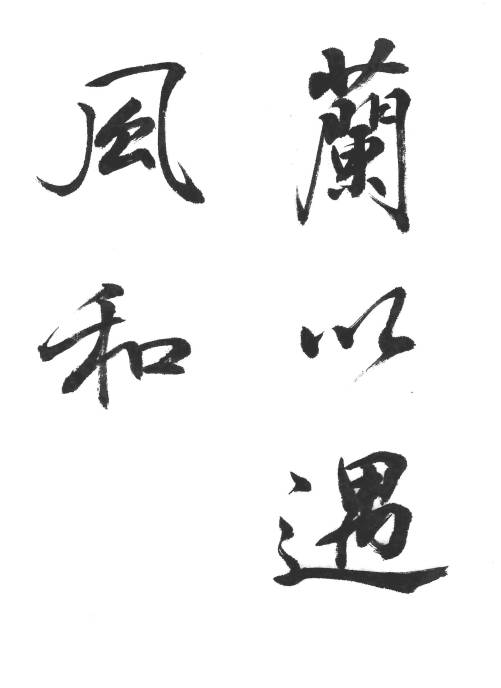 蘭以遇
風和